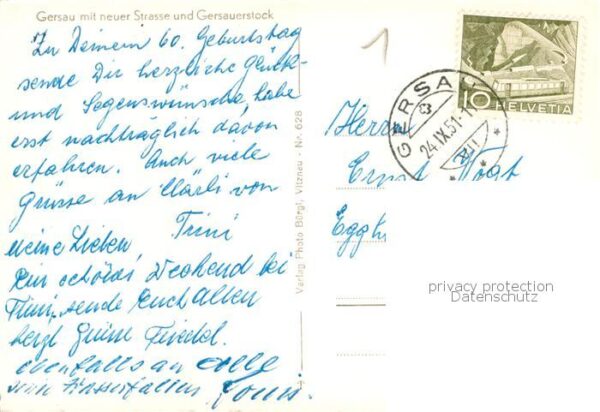 Gersau mit neuer Strasse und Gersauerstock
Zu Deinem 60. Geburtstag
sende Dir herzliche Glück-
und Segenswünsche, habe
erst nachträglich davon
erfahren. Auch viele
Grüsse an Märli von
Trini
Meine Lieben
Ein schöns Weekend bei
Trini, sende Euch Allen
herzl. Grüsse Friedel.
Ebenfalls an alle
Louis.
Verlag Photo Bürgi, Vitznau - Nr. 628
1
10 HELVETIA
GERSAU
24.IX.51.-1
Herrn
Ernst Vogt
Eggh
privacy protection
Datenschutz